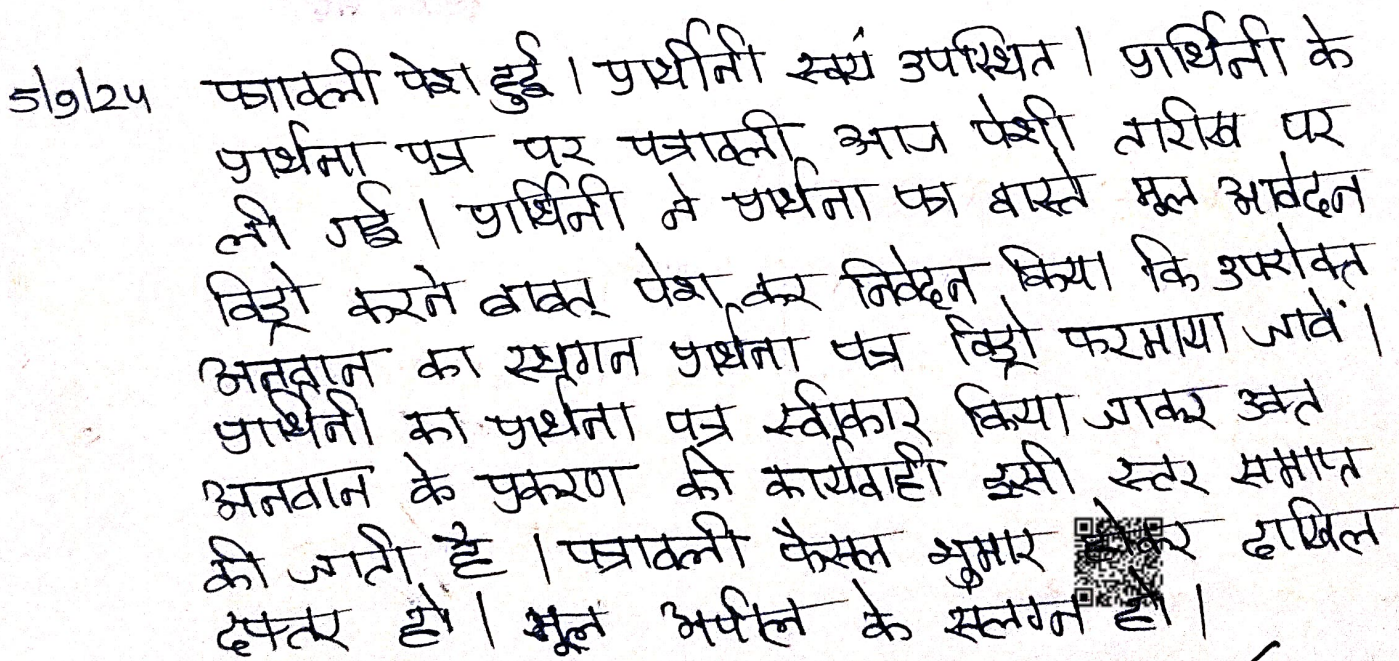 5/9/24 पत्रावली पेश हुई । प्रार्थीनी स्वयं उपस्थित । प्रार्थिनी के
प्रार्थना पत्र पर पत्रावली आज पेशी तारीख पर
ली गई । प्रार्थिनी ने प्रार्थना पत्र वास्ते मूल आवेदन
विड्रो करने बाबत् पेश कर निवेदन किया कि उपरोक्त
अनवान का स्थगन प्रार्थना पत्र विड्रो फरमाया जावें ।
प्रार्थिनी का प्रार्थना पत्र स्वीकार किया जाकर उक्त
अनवान के प्रकरण की कार्यवाही इसी स्तर समाप्त
की जाती है । पत्रावली फैसल शुमार होकर दाखिल
दफ्तर हो । मूल अपील के सलग्न हो ।